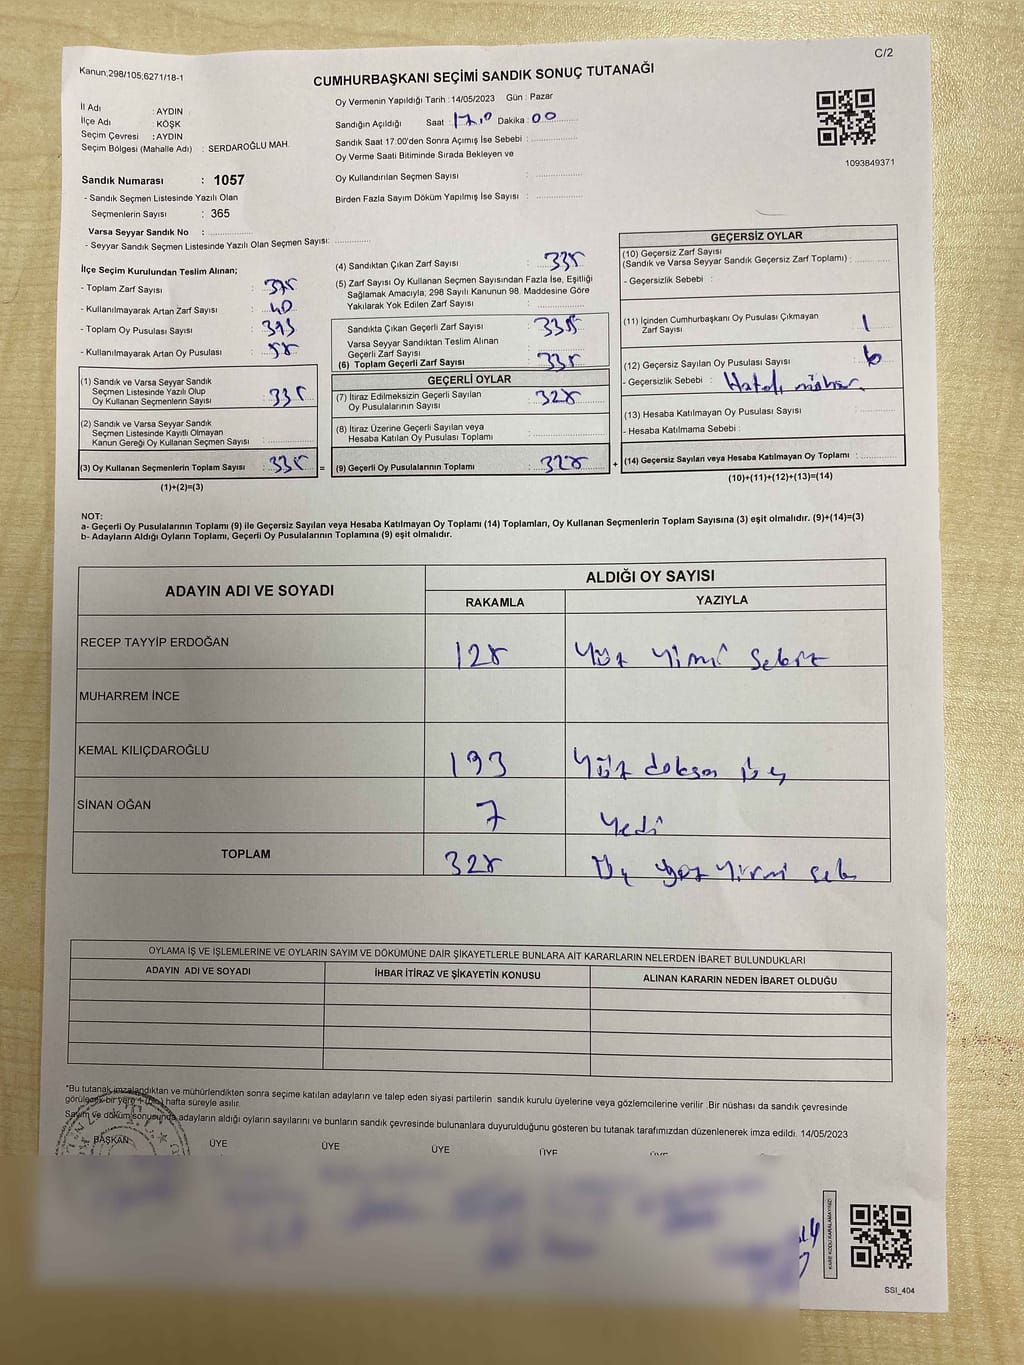 C/2
Kanun;298/105;6271/18-1
CUMHURBAŞKANI SEÇİMİ SANDIK SONUÇ TUTANAĞI
İl Adı : AYDIN
İlçe Adı : KÖŞK
Seçim Çevresi : AYDIN
Seçim Bölgesi (Mahalle Adı) : SERDAROĞLU MAH.
Oy Vermenin Yapıldığı Tarih : 14/05/2023 Gün : Pazar
Sandığın Açıldığı Saat 17.0 Dakika : 00
Sandık Saat 17:00'den Sonra Açımış İse Sebebi :
Oy Verme Saati Bitiminde Sırada Bekleyen ve
Oy Kullandırılan Seçmen Sayısı :
Birden Fazla Sayım Döküm Yapılmış İse Sayısı :
1093849371
Sandık Numarası : 1057
- Sandık Seçmen Listesinde Yazılı Olan
Seçmenlerin Sayısı : 365
Varsa Seyyar Sandık No :
- Seyyar Sandık Seçmen Listesinde Yazılı Olan Seçmen Sayısı:
İlçe Seçim Kurulundan Teslim Alınan;
- Toplam Zarf Sayısı : 375
- Kullanılmayarak Artan Zarf Sayısı : 40
- Toplam Oy Pusulası Sayısı : 393
- Kullanılmayarak Artan Oy Pusulası : 58
(1) Sandık ve Varsa Seyyar Sandık
Seçmen Listesinde Yazılı Olup
Oy Kullanan Seçmenlerin Sayısı : 335
(2) Sandık ve Varsa Seyyar Sandık
Seçmen Listesinde Kayıtlı Olmayan
Kanun Gereği Oy Kullanan Seçmen Sayısı :
(3) Oy Kullanan Seçmenlerin Toplam Sayısı : 335 =
(1)+(2)=(3)
(4) Sandıktan Çıkan Zarf Sayısı : 335
(5) Zarf Sayısı Oy Kullanan Seçmen Sayısından Fazla İse, Eşitliği
Sağlamak Amacıyla; 298 Sayılı Kanunun 98. Maddesine Göre
Yakılarak Yok Edilen Zarf Sayısı :
Sandıkta Çıkan Geçerli Zarf Sayısı : 335
Varsa Seyyar Sandıktan Teslim Alınan
Geçerli Zarf Sayısı :
(6) Toplam Geçerli Zarf Sayısı : 335
GEÇERLİ OYLAR
(7) İtiraz Edilmeksizin Geçerli Sayılan
Oy Pusulalarının Sayısı : 328
(8) İtiraz Üzerine Geçerli Sayılan veya
Hesaba Katılan Oy Pusulası Toplamı :
(9) Geçerli Oy Pusulalarının Toplamı : 328 +
GEÇERSİZ OYLAR
(10) Geçersiz Zarf Sayısı
(Sandık ve Varsa Seyyar Sandık Geçersiz Zarf Toplamı) :
- Geçersizlik Sebebi :
(11) İçinden Cumhurbaşkanı Oy Pusulası Çıkmayan
Zarf Sayısı : 1
(12) Geçersiz Sayılan Oy Pusulası Sayısı : 6
- Geçersizlik Sebebi : Hatalı mühür.
(13) Hesaba Katılmayan Oy Pusulası Sayısı :
- Hesaba Katılmama Sebebi :
(14) Geçersiz Sayılan veya Hesaba Katılmayan Oy Toplamı :
(10)+(11)+(12)+(13)=(14)
NOT:
a- Geçerli Oy Pusulalarının Toplamı (9) ile Geçersiz Sayılan veya Hesaba Katılmayan Oy Toplamı (14) Toplamları, Oy Kullanan Seçmenlerin Toplam Sayısına (3) eşit olmalıdır. (9)+(14)=(3)
b- Adayların Aldığı Oyların Toplamı, Geçerli Oy Pusulalarının Toplamına (9) eşit olmalıdır.
ADAYIN ADI VE SOYADI
ALDIĞI OY SAYISI
RAKAMLA YAZIYLA
RECEP TAYYİP ERDOĞAN 128 Yüz Yirmi Sekiz
MUHARREM İNCE
KEMAL KILIÇDAROĞLU 193 Yüz doksan üç
SİNAN OĞAN 7 Yedi
TOPLAM 328 Üç yüz Yirmi sek
OYLAMA İŞ VE İŞLEMLERİNE VE OYLARIN SAYIM VE DÖKÜMÜNE DAİR ŞİKAYETLERLE BUNLARA AİT KARARLARIN NELERDEN İBARET BULUNDUKLARI
ADAYIN ADI VE SOYADI İHBAR İTİRAZ VE ŞİKAYETİN KONUSU ALINAN KARARIN NEDEN İBARET OLDUĞU
*Bu tutanak imzalandıktan ve mühürlendikten sonra seçime katılan adayların ve talep eden siyasi partilerin sandık kurulu üyelerine veya gözlemcilerine verilir .Bir nüshası da sandık çevresinde
görülecek bir yere 1 (bir) hafta süreyle asılır.
Sayım ve döküm sonucunda adayların aldığı oyların sayılarını ve bunların sandık çevresinde bulunanlara duyurulduğunu gösteren bu tutanak tarafımızdan düzenlenerek imza edildi. 14/05/2023
BAŞKAN ÜYE ÜYE ÜYE ÜYE ÜYE
KARE KODU KARALAMAYINIZ!
SSI_404